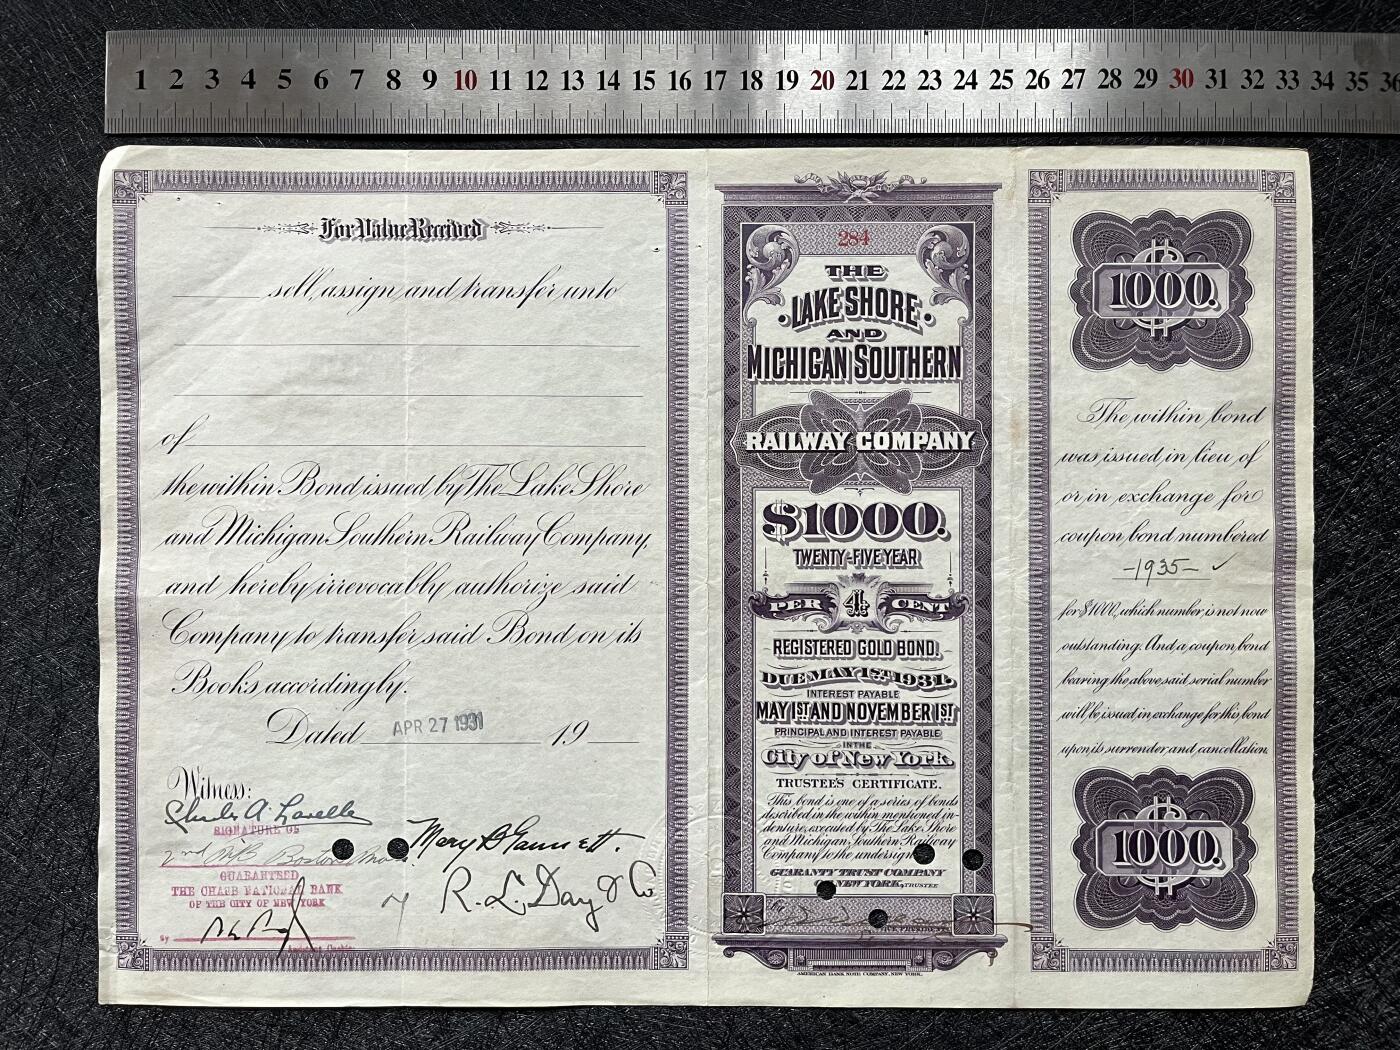 1 2 3 4 5 6 7 8 9 10 11 12 13 14 15 16 17 18 19 20 21 22 23 24 25 26 27 28 29 30 31 32 33 34 35 36
For Value Received
sell, assign and transfer unto
of
the within Bond issued by The Lake Shore
and Michigan Southern Railway Company,
and hereby irrevocably authorize said
Company to transfer said Bond on its
Books accordingly.
Dated APR 27 1931 19
Witness:
Charles A. Lavelle
SIGNATURE OF
2nd Boston Mass.
GUARANTEED
THE CHASE NATIONAL BANK
OF THE CITY OF NEW YORK
By
Assistant Cashier
Mary B Gannett.
R. L. Day & Co
284
THE
LAKE SHORE
AND
MICHIGAN SOUTHERN
RAILWAY COMPANY
$1000.
TWENTY-FIVE YEAR
4 PER CENT
REGISTERED GOLD BOND.
DUE MAY 1ST 1931.
INTEREST PAYABLE
MAY 1ST AND NOVEMBER 1ST
PRINCIPAL AND INTEREST PAYABLE
IN THE
City of New York.
TRUSTEE'S CERTIFICATE.
This bond is one of a series of bonds
described in the within mentioned in-
denture, executed by The Lake Shore
and Michigan Southern Railway
Company to the undersigned
GUARANTY TRUST COMPANY
OF NEW YORK, TRUSTEE
by
VICE PRESIDENT
AMERICAN BANK NOTE COMPANY, NEW YORK.
$1000.
The within bond
was issued in lieu of
or in exchange for
coupon bond numbered
-1935- ✓
for $1000, which number is not now
outstanding. And a coupon bond
bearing the above said serial number
will be issued in exchange for this bond
upon its surrender and cancellation.
$1000.